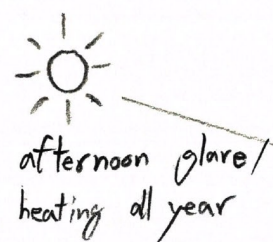 afternoon glare/
heating all year